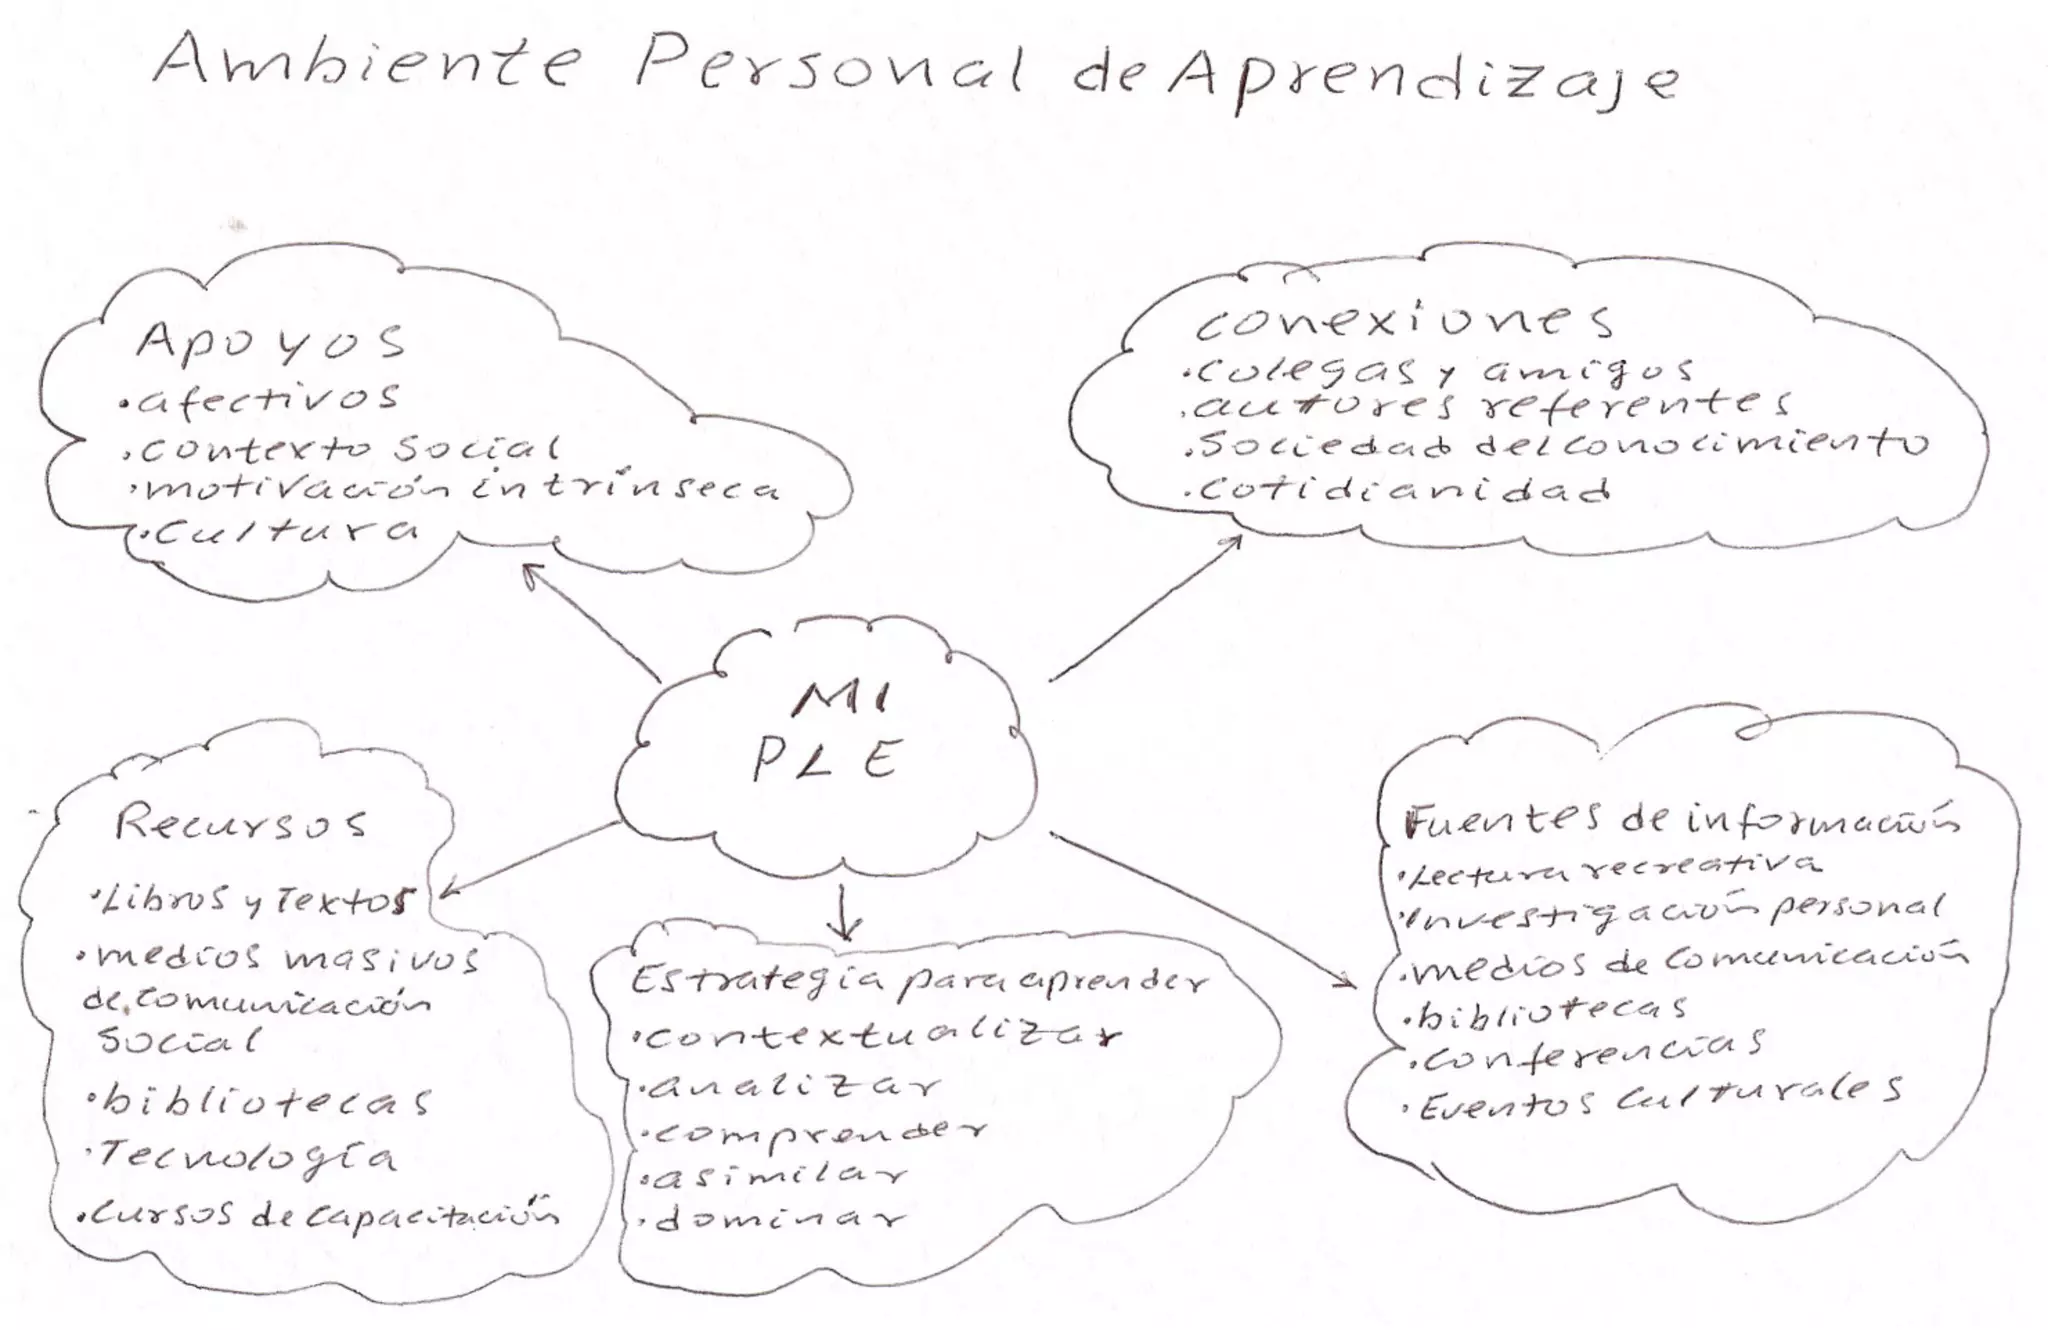 Ambiente Personal de Aprendizaje
Apoyos
• afectivos
• contexto social
• motivación intrínseca
• Cultura
conexiones
• colegas y amigos
• autores referentes
• Sociedad del conocimiento
• Cotidianidad
MI
PLE
Recursos
• Libros y Textos
• medios masivos
de comunicación
Social
• bibliotecas
• Tecnología
• Cursos de Capacitación
Estrategia para aprender
• contextualizar
• analizar
• comprender
• asimilar
• dominar
Fuentes de información
• Lectura recreativa
• Investigación personal
• medios de Comunicación
• bibliotecas
• Conferencias
• Eventos Culturales